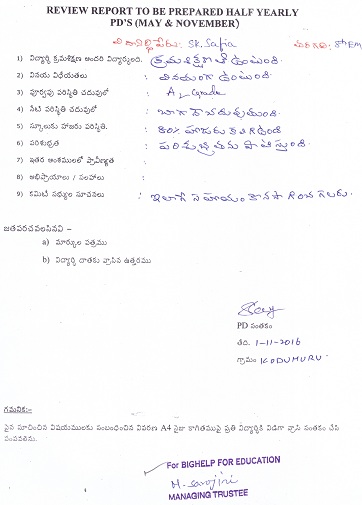 REVIEW REPORT TO BE PREPARED HALF YEARLY
PD'S (MAY & NOVEMBER)
విద్యార్థిపేరు: SK. Safia తరగతి: 8th EM
1) విద్యార్థి క్రమశిక్షణ అందరి విద్యార్థులంది. : క్రమశిక్షణతో ఉంటుంది.
2) వినయ విధేయతలు : వినయంగా ఉంటుంది.
3) పూర్వపు పరిస్థితి చదువులో : A Grade
4) నేటి పరిస్థితి చదువులో : బాగా చదువుతుంది.
5) స్కూలుకు హాజరు పరిస్థితి. : 80% హాజరు కలిగి ఉంది
6) పరిశుభ్రత : పరిశుభ్రతను పాటిస్తుంది.
7) ఇతర అంశములలో ప్రావీణ్యత :
8) అభిప్రాయాలు / సలహాలు :
9) కమిటీ సభ్యుల సూచనలు : ఇలాగే సహాయం
జతపరచవలసినవి –
a) మార్కుల పత్రము
b) విద్యార్థి దాతకు వ్రాసిన ఉత్తరము
PD సంతకం
తేది. 1-11-2016
గ్రామం KODUMURU
గమనిక:-
పైన సూచించిన విషయములకు సంబంధించిన వివరణ A4 సైజు కాగితముపై ప్రతి విద్యార్థికి విడిగా వ్రాసి సంతకం చేసి
పంపవలెను.
For BIGHELP FOR EDUCATION
M. Sarojini
MANAGING TRUSTEE